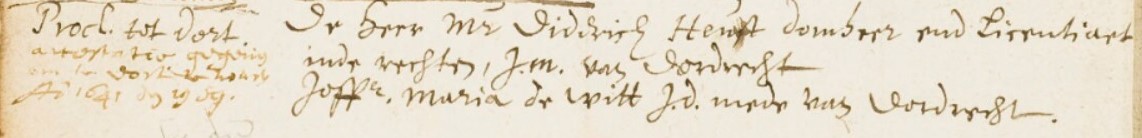 Procl. tot Dort
attestatie gegeven
om te Dort te trouwen
Aº 1641 den 19
De Heer Mr Diddrich domheer end Licentiaet
inde rechten, J.m. van Dordrecht
Joffr. Maria de Witt J.d. mede van Dordrecht.